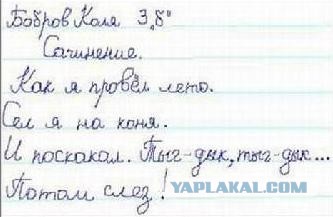 Бобров Коля 3 „б"
Сочинение.
Как я провёл лето.
Сел я на коня.
И поскакал. Тыг-дык, тыг-дык...
Потом слез!
YAPLAKAL.COM